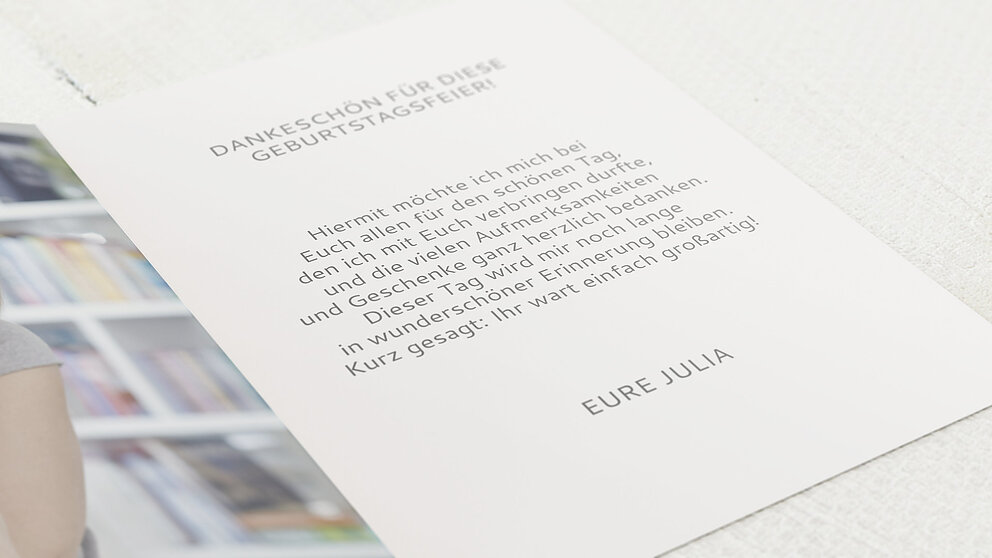 DANKESCHÖN FÜR DIESE
GEBURTSTAGSFEIER!
Hiermit möchte ich mich bei
Euch allen für den schönen Tag,
den ich mit Euch verbringen durfte,
und die vielen Aufmerksamkeiten
und Geschenke ganz herzlich bedanken.
Dieser Tag wird mir noch lange
in wunderschöner Erinnerung bleiben.
Kurz gesagt: Ihr wart einfach großartig!
EURE JULIA